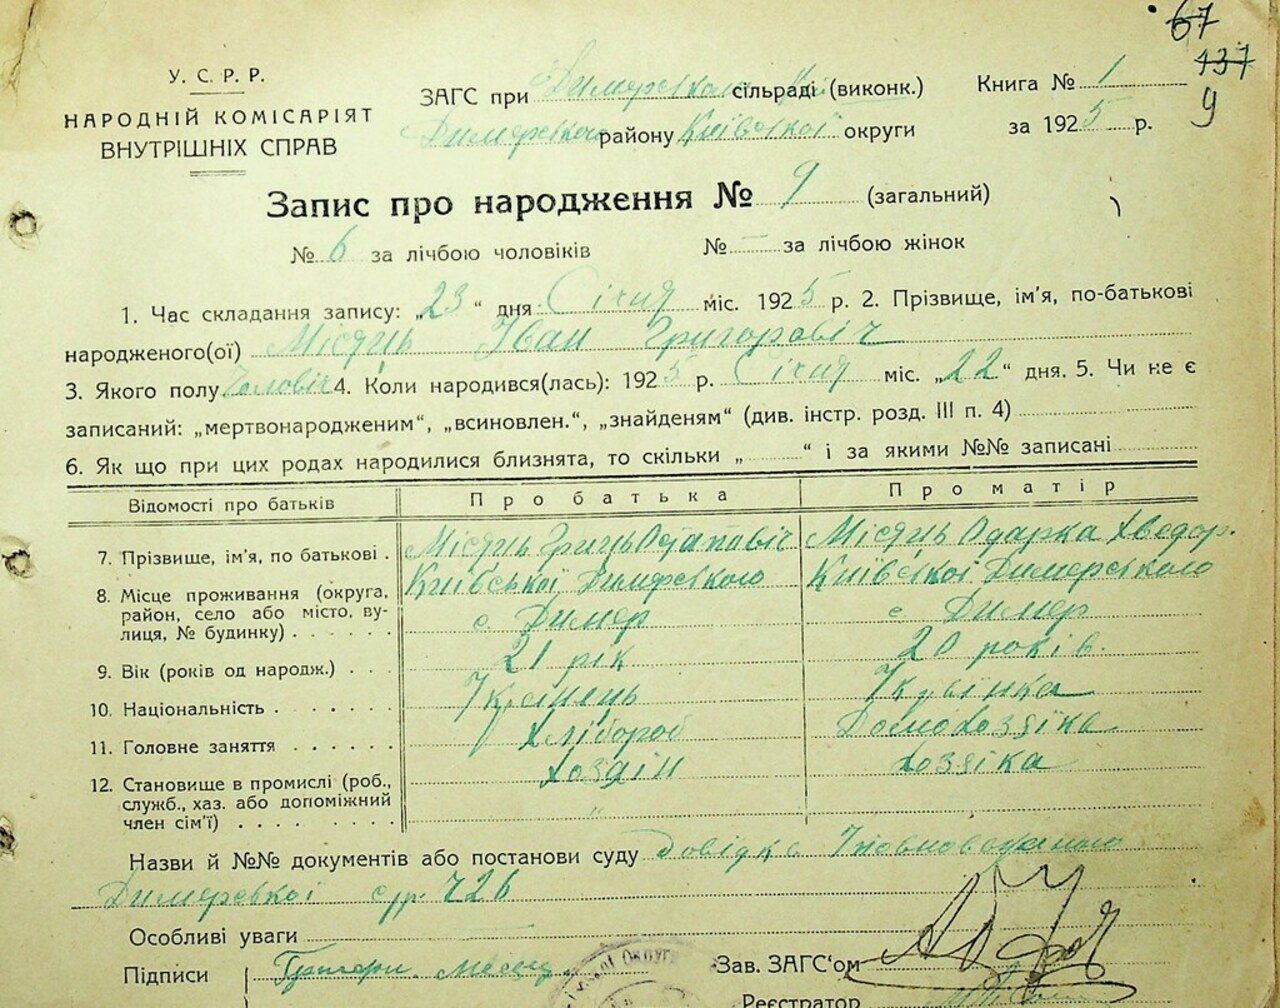 67
137
9
У. С. Р. Р.
НАРОДНІЙ КОМІСАРІЯТ
ВНУТРІШНІХ СПРАВ
ЗАГС при Димерській сільраді (виконк.) Книга № 1
Димерського району Київської округи за 1925 р.
Запис про народження № 9 (загальний)
№ 6 за лічбою чоловіків № — за лічбою жінок
1. Час складання запису: „23“ дня Січня міс. 1925 р. 2. Прізвище, ім'я, по-батькові
народженого(ої) Місяць Іван Григоровіч
3. Якого полу Чоловіч 4. Коли народився(лась): 1925 р. Січня міс. „22“ дня. 5. Чи не є
записаний: „мертвонародженим“, „всиновлен.“, „знайденям“ (див. інстр. розд. III п. 4)
6. Як що при цих родах народилися близнята, то скільки „ “ і за якими №№ записані
Відомості про батьків Про батька Про матір
7. Прізвище, ім'я, по батькові . Місяць Гриць Остапавіч Місяць Одарка Хведор.
8. Місце проживання (округа, район, село або місто, вулиця, № будинку) . . . . . Київської Димерського Київської Димерського
с. Димер с. Димер
9. Вік (років од народж.) . . . 21 рік 20 років.
10. Національність . . . . . . Українець Українка
11. Головне заняття . . . . . . Хлібороб Домохозяіка
12. Становище в промислі (роб., служб., хаз. або допоміжний член сім'ї) . . . . . . . Хозяін Хозяіка
"
Назви й №№ документів або постанови суду Довідка Уповноваженого
Димерської с/р. 726
Особливі уваги
Підписи Григори. Месяц.
Зав. ЗАГС'ом
Реєстратор
ОКРУГ